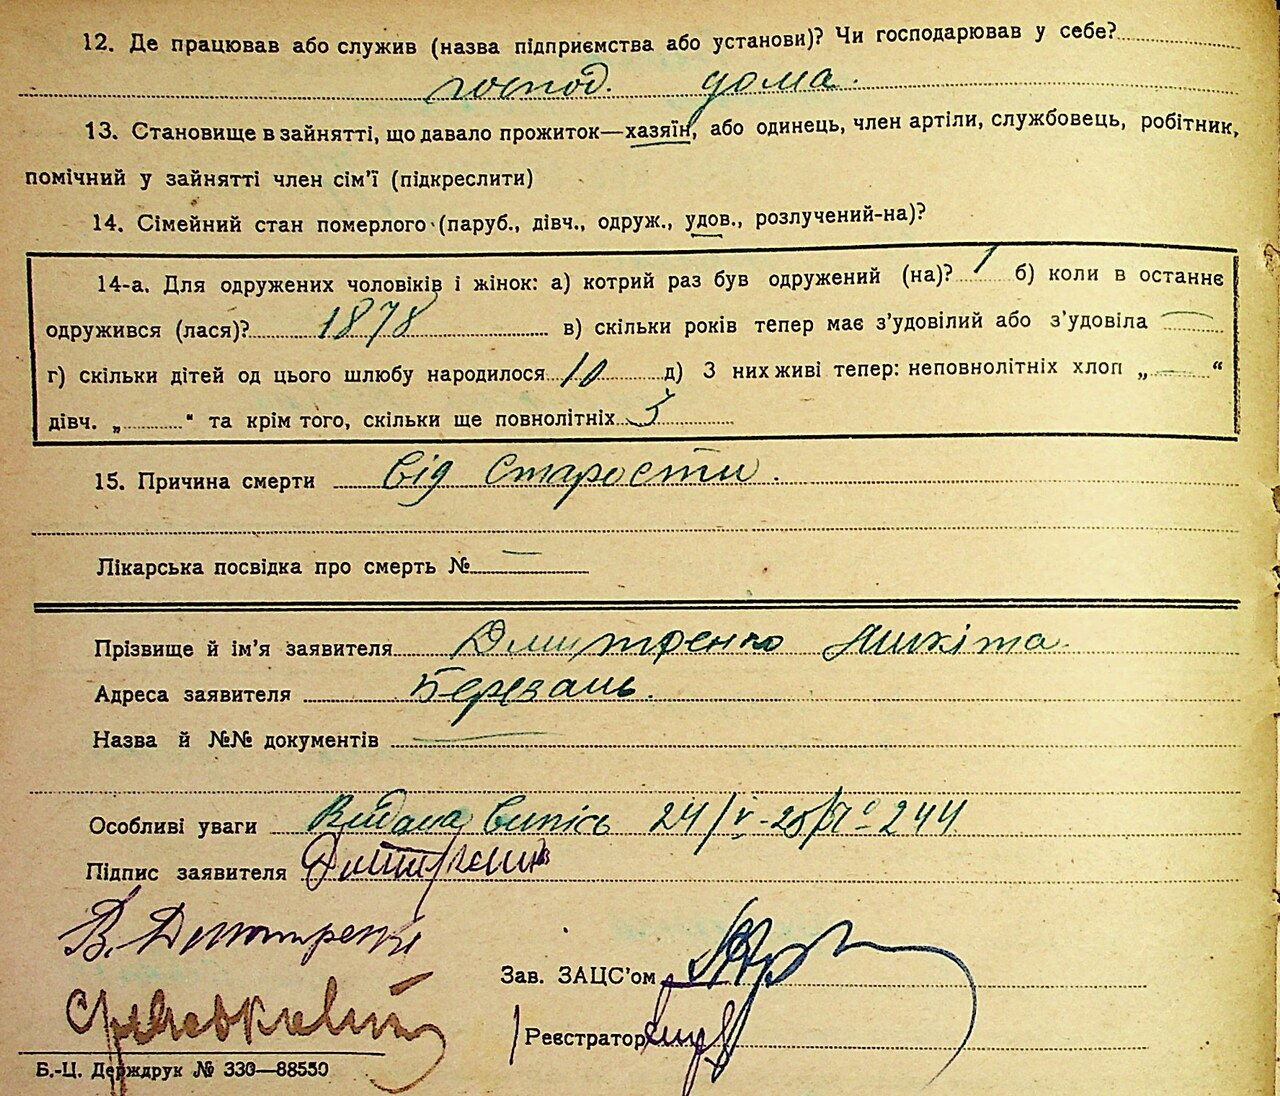 12. Де працював або служив (назва підприємства або установи)? Чи господарював у себе?
господ. дома.
13. Становище в зайнятті, що давало прожиток—хазяїн, або одинець, член артіли, службовець, робітник,
помічний у зайнятті член сім'ї (підкреслити)
14. Сімейний стан померлого (паруб., дівч., одруж., удов., розлучений-на)?
14-а. Для одружених чоловіків і жінок: а) котрий раз був одружений (на)? 1 б) коли в останнє
одружився (лася)? 1878 в) скільки років тепер має з'удовілий або з'удовіла —
г) скільки дітей од цього шлюбу народилося 10 д) З них живі тепер: неповнолітніх хлоп „—“
дівч. „ “ та крім того, скільки ще повнолітніх 5
15. Причина смерти від старости.
Лікарська посвідка про смерть № —
Прізвище й ім'я заявителя Дмитренко Микіта
Адреса заявителя Березань.
Назва й №№ документів —
Особливі уваги Видана випись 24/V-25 р № 244
Підпис заявителя
В. Дмитренко
Зав. ЗАЦС'ом
Реєстратор
Б.-Ц. Держдрук № 330—88550